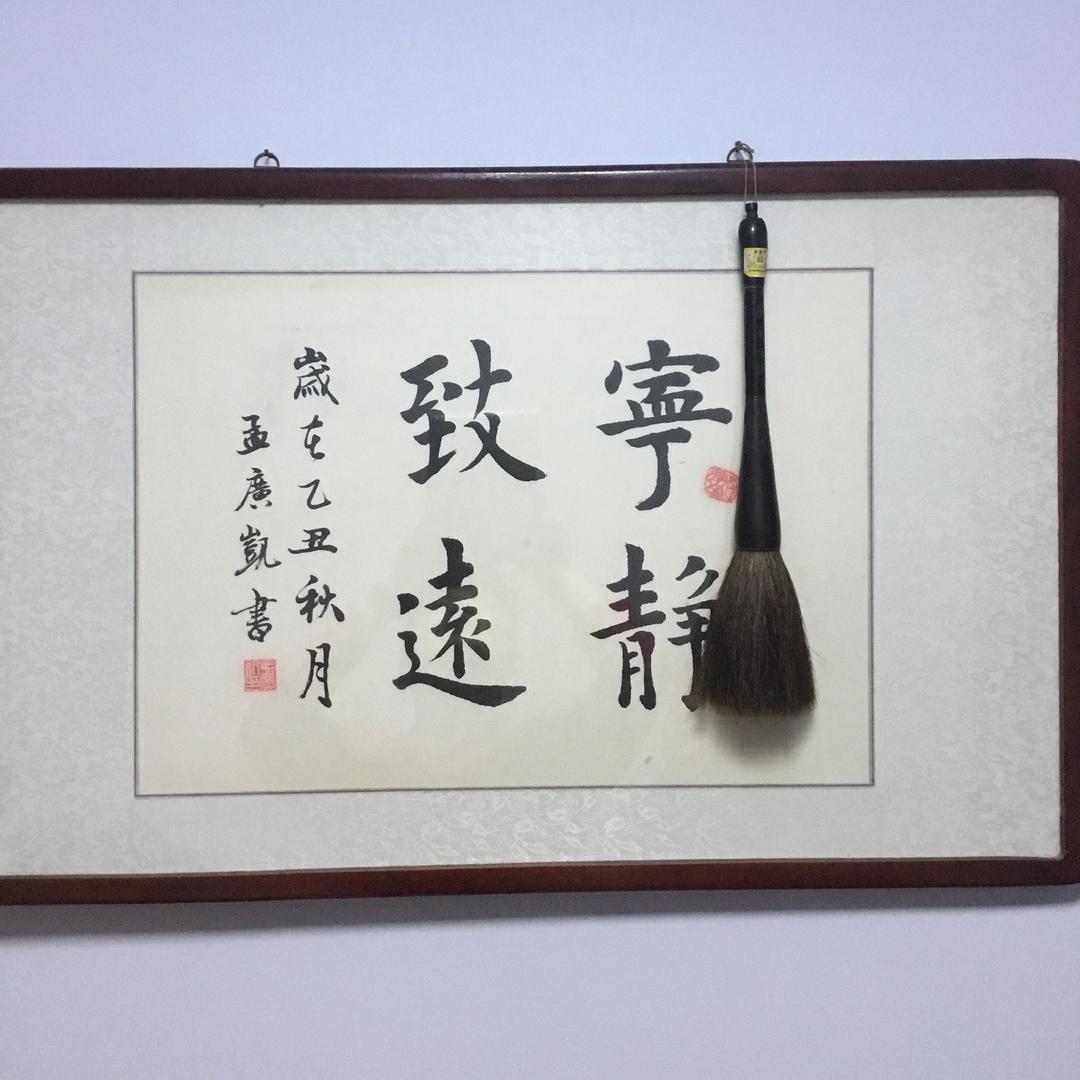 寧静
致遠
歲在乙丑秋月
孟廣凱書